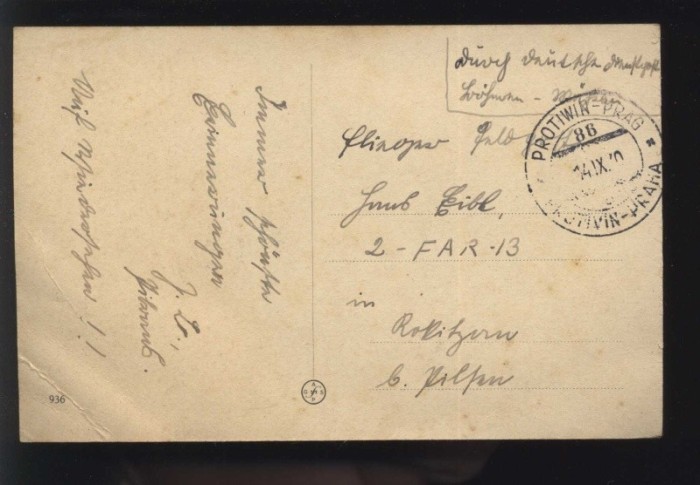 durch deutsche Dienstpost
Böhmen - Mähren
PROTIWIN-PRAG
86
14.IX.40
PROTIVIN-PRAHA
Flieger Feldpost
Hans Eibl,
2-FAR·13
in
Rokitzan
b. Pilsen
Immer schönste
Erinnerungen
Auf Wiedersehen!!
936